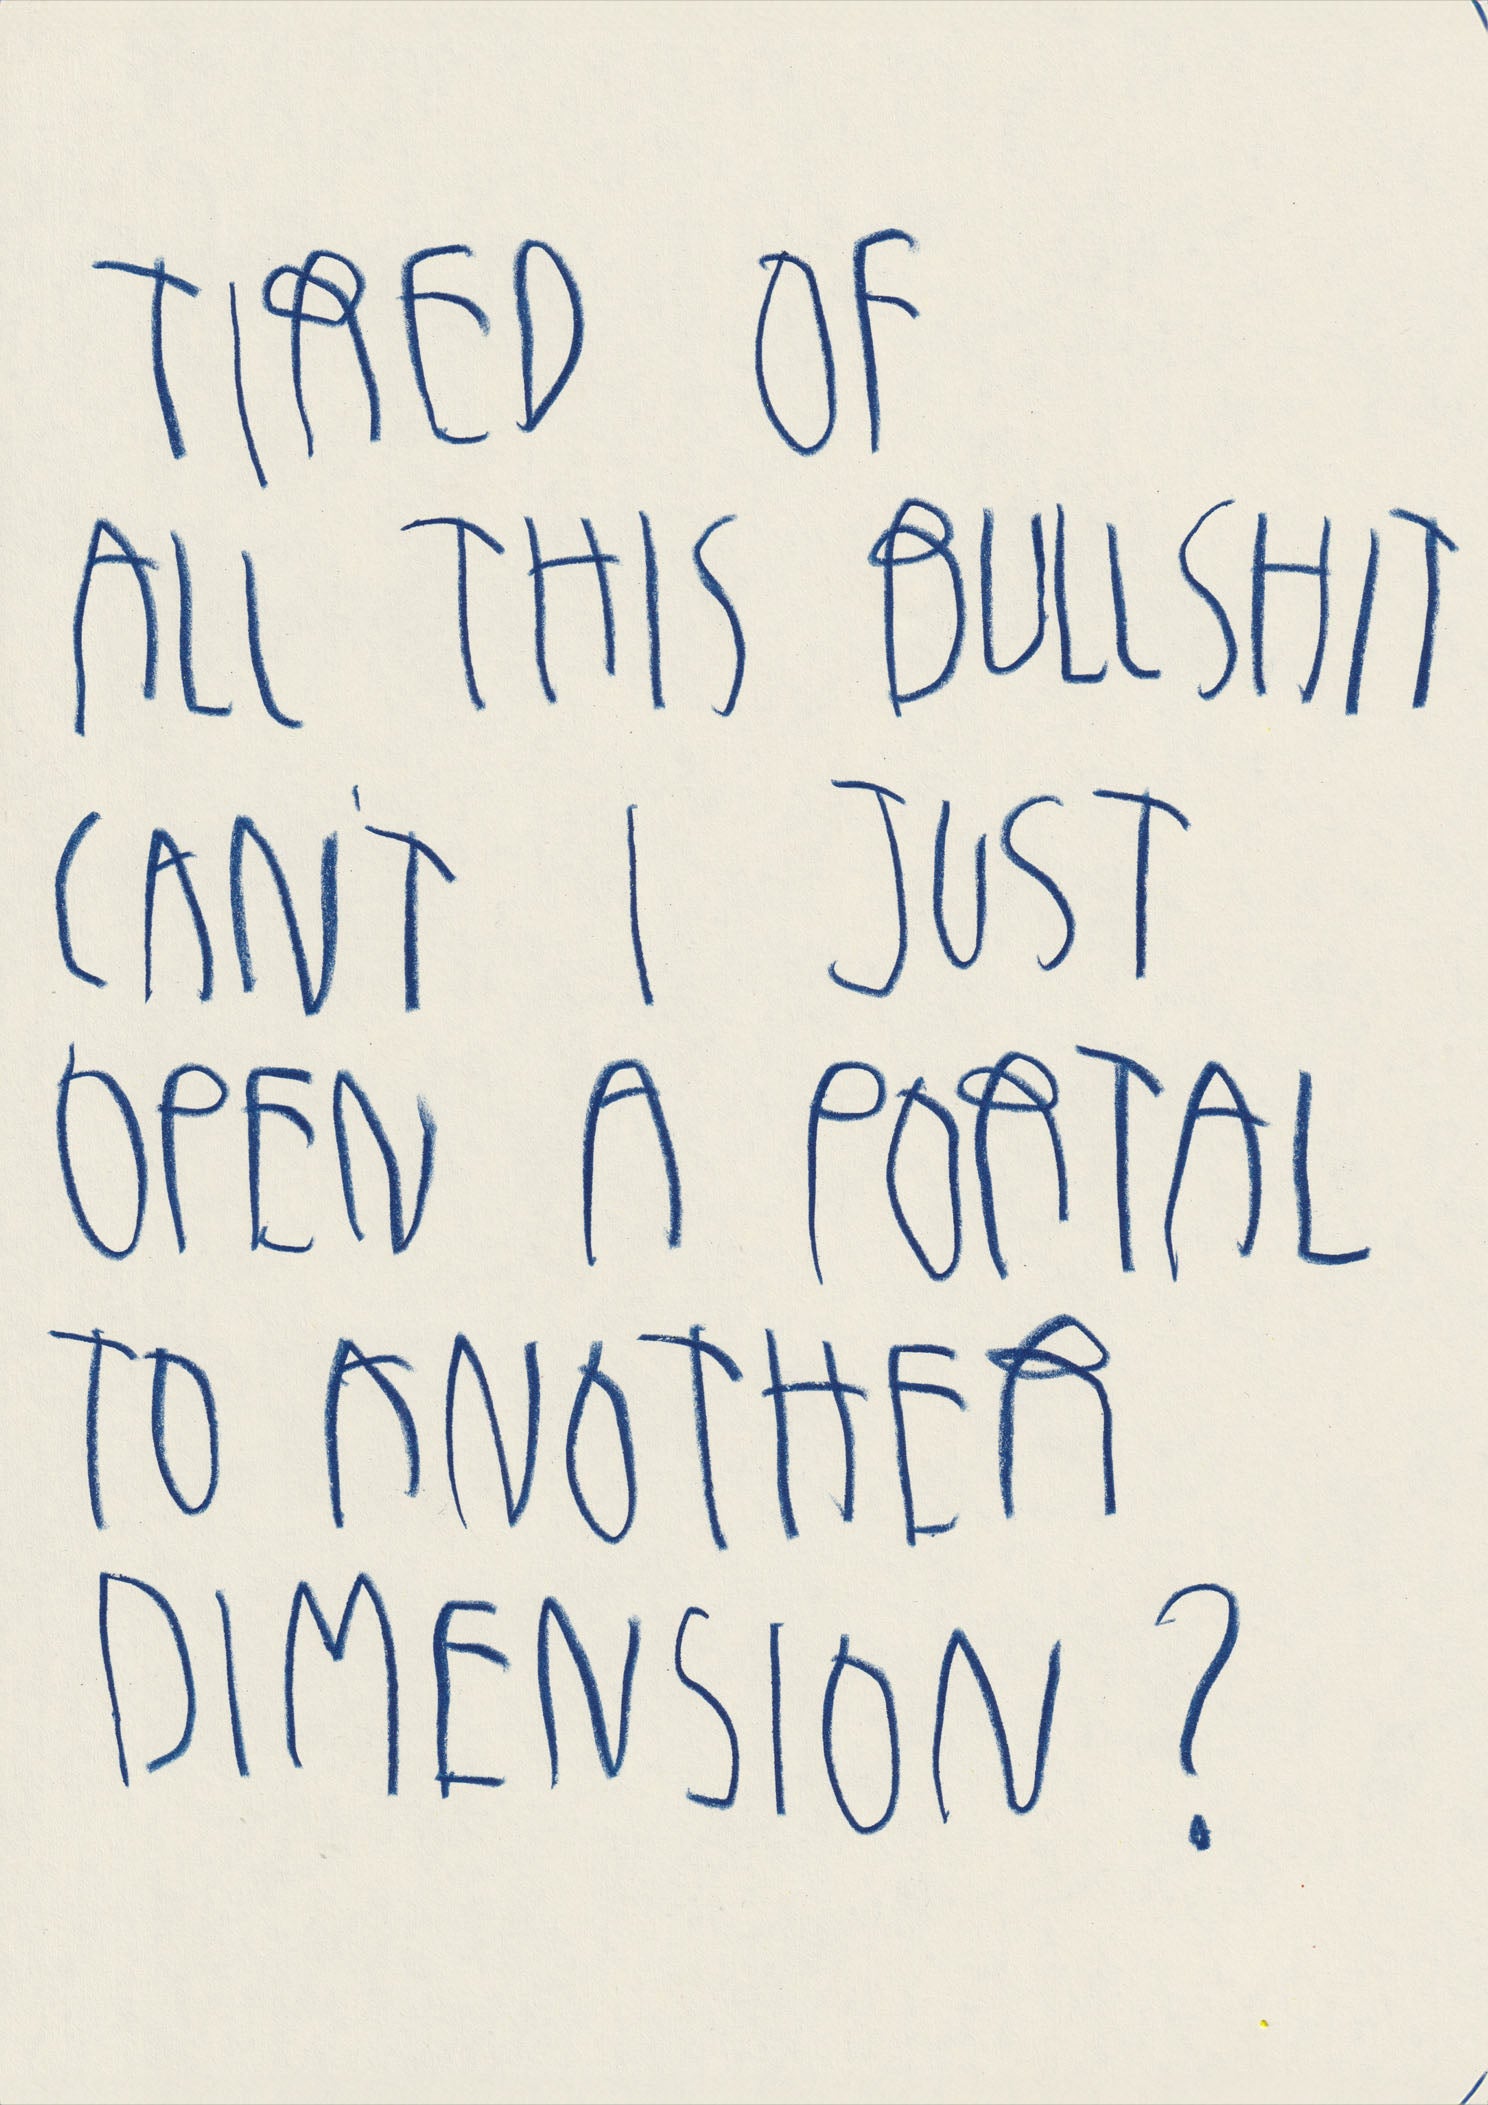 TIRED OF
ALL THIS BULLSHIT
CAN'T I JUST
OPEN A PORTAL
TO ANOTHER
DIMENSION?